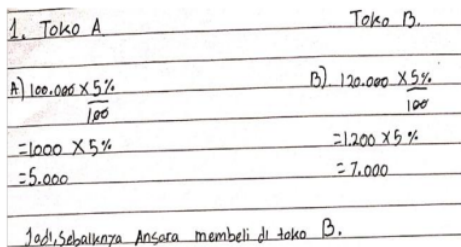 1. Toko A Toko B.
A) 100.000 x 5% B). 120.000 x 5%
100 100
=1000 x 5% =1.200 x 5%
=5.000 =7.000
Jadi, Sebaiknya Ansara membeli di toko B.